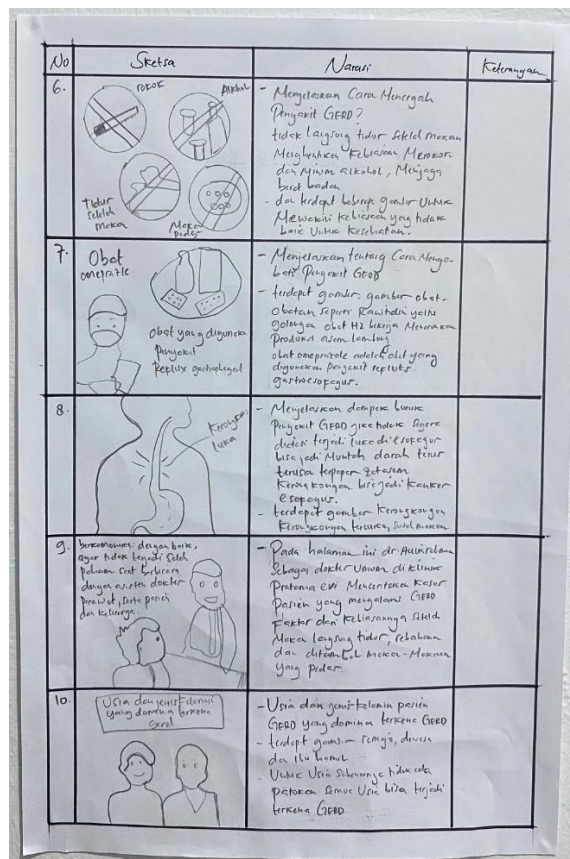 No
Sketsa
Narasi
Keterangan
6.
rokok
Alkohol
Tidur
setelah
makan
Makan
pedas
- Menjelaskan Cara Mencegah
Penyakit GERD?
tidak langsung tidur setelah makan
Menghentikan Kebiasaan Merokok
dan Minum alkohol, Menjaga
berat badan
- dan terdapat beberapa gambar Untuk
Mewakili Kebiasaan yang tidak
baik Untuk Kesehatan.
7.
Obat
omeprazole
Obat yang digunakan
Penyakit
Reflux gastroesophageal
- Menjelaskan tentang Cara Mengo-
bati Penyakit GERD
- terdapat gambar-gambar obat-
obatan seperti Ranitidin yaitu
golongan obat H2 bekerja Menurunkan
Produksi asam lambung
obat omeprazole adalah obat yang
digunakan penyakit refluks
gastroesofagus.
8.
Kerongkongan
luka
- Menjelaskan dampak buruk
Penyakit GERD jika tidak segera
diobati terjadi luka di esofagus
bisa jadi Muntah darah terus
terusan terpapar zat asam
Kerongkongan bisa jadi kanker
esofagus.
- terdapat gambar Kerongkongan
Kerongkongan terluka
9.
berkomunikasi dengan baik,
agar tidak terjadi salah
paham saat berbicara
dengan asisten dokter
perawat, serta pasien
dan keluarga.
- Pada halaman ini dr.
Sebagai dokter Umum di klinik
Pratama evi Menceritakan Kasus
Pasien yang mengalami GERD
Faktor dari Kebiasaannya setelah
Makan langsung tidur, rebahan
dan ditambah makan-Makanan
yang pedas.
10.
Usia dan jenis Kelamin
yang dominan terkena
Gerd
- Usia dan jenis kelamin pasien
GERD yang dominan terkena GERD
- terdapat gambar remaja, dewasa
dan ibu hamil
- Untuk Usia Sebenarnya tidak ada
patokan Semua Usia bisa terjadi
terkena GERD.